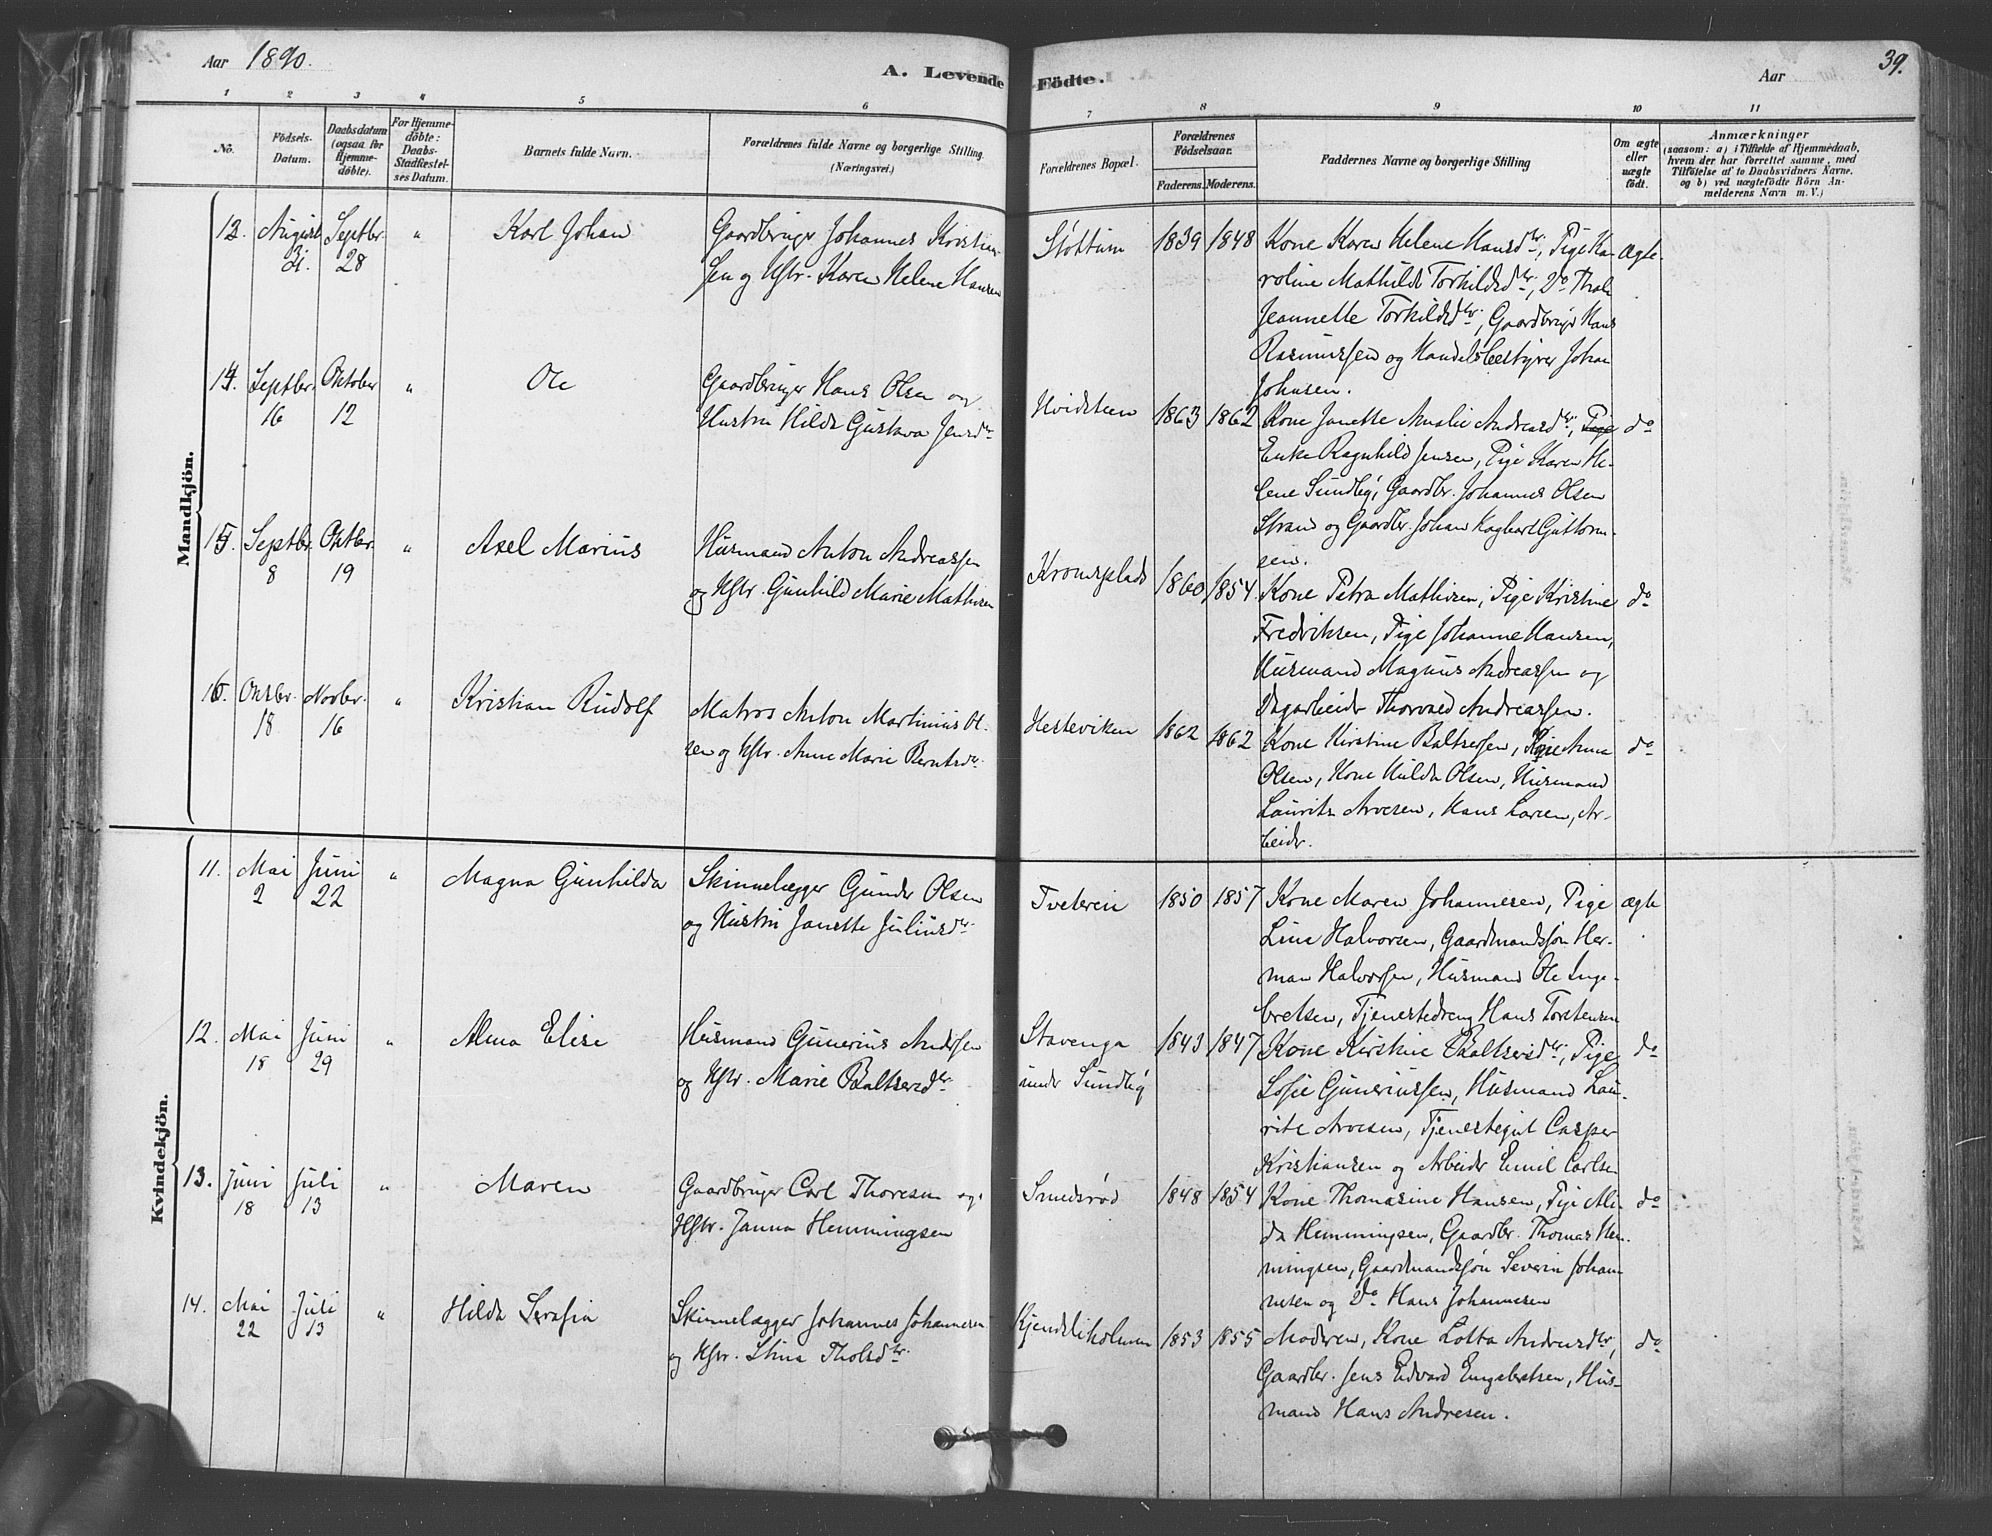 Aar 1890.
A. Levende Födte.
Aar
39.
1 2 3 4 5 6 7 8 9 10 11
No.
Födsels-Datum.
Daabsdatum (ogsaa for Hjemme-döbte).
For Hjemme-döbte: Daabs-Stadfæstel-ses Datum.
Barnets fulde Navn.
Forældrenes fulde Navne og borgerlige Stilling (Næringsvei.)
Forældrenes Bopæl.
Forældrenes Födselsaar.
Faderens. Moderens.
Faddernes Navne og borgerlige Stilling
Om ægte eller uægte födt.
Anmærkninger
(saasom: a) i Tilfælde af Hjemmedaab, hvem der har forrettet samme, med Tilföielse af to Daabsvidners Navne, og b) ved uægtefödte Börn An-melderens Navn m. V.)
Mandkjön.
13. August 31. Septbr. 28 " Karl Johan
Gaardbruger Johannes Kristian-
sen og Hstr. Karen Helene Hansen
Støttum 1839 1848
Kone Karen Helene Hansdtr, Pige Ka-
roline Mathilde Torkildsdtr, Do Thale
Jeannette Torkildsdtr, Gaardbruger Hans
Rasmussen og Handelsbestyrer Johan
Johnsen.
Ægte
14. Septbr. 16 Oktober 12 " Ole
Gaardbruger Hans Olsen og
Hustru Hilda Gustava Jensdtr
Hvidsteen 1863 1862
Kone Janette Amalie Andreasdtr, Pige
Enke Ragnhild Jensen, Pige Karen He-
lene Sundby, Gaardbr. Johannes Olsen
Strand og Gaardbr. Johan Hagbart Guttorm-
sen.
do
15. Septbr. 8 Oktbr. 19 " Axel Marius
Husmand Anton Andreassen
og Hstr. Gunhild Marie Mathisen
Kronesplads 1860 1854
Kone Petra Mathisen, Pige Kristine
Fredriksen, Pige Johanne Hansen,
Husmand Magnus Andreassen og
Dagarbeider Thorvald Andreassen.
do
16. Oktbr. 18 Novbr. 16 " Kristian Rudolf
Matros Anton Martinius Ol-
sen og Hstr. Anne Marie Berntsdtr
Hesteviken 1862 1862
Kone Kirstine Baltsersen, Pige Anna
Olsen, Kone Hulda Olsen, Husmand
Laurits Arvesen, Hans Larsen, Ar-
beider.
do
Kvindekjön.
11. Mai 2 Juni 22 " Magna Gunhilda
Skinnelægger Gunder Olsen
og Hustru Janette Juliusdtr
Tveterei 1850 1857
Kone Maren Johannesen, Pige
Lina Halvorsen, Gaardmandssøn Her-
man Halvorsen, Husmand Ole Inge-
bretsen, Tjenestedreng Hans Torstensen
ægte
12. Mai 18 Juni 29 " Alma Elise
Husmand Gunerius Andersen
og Hstr. Marie Baltsersdtr
Stavenga
under Sundby
1843 1847
Kone Kirstine Baltsersdtr, Pige
Sofie Gunneriussen, Husmand Lau-
rits Arvesen, Tjenestegut Casper
Kristiansen og Arbeider Emil Carlsen
do
13. Juni 18 Juli 13 " Maren
Gaardbruger Carl Thoresen og
Hstr. Janna Hemmingsen
Smedsrød 1848 1854
Kone Thomasine Hansen, Pige Ali-
da Hemmingsen, Gaardbr. Thomas Hem-
mingsen, Gaardmandssøn Severin Johan-
nesen og Do Hans Johannesen
do
14. Mai 22 Juli 13 " Hilda Serafia
Skinnelægger Johannes Johannesen
og Hstr. Stina Tholsdtr
Kjendsliholmen 1853 1855
Moderen, Kone Lotta Andreasdtr,
Gaardbr. Jens Edvard Engebretsen, Hus-
mand Hans Andresen.
do